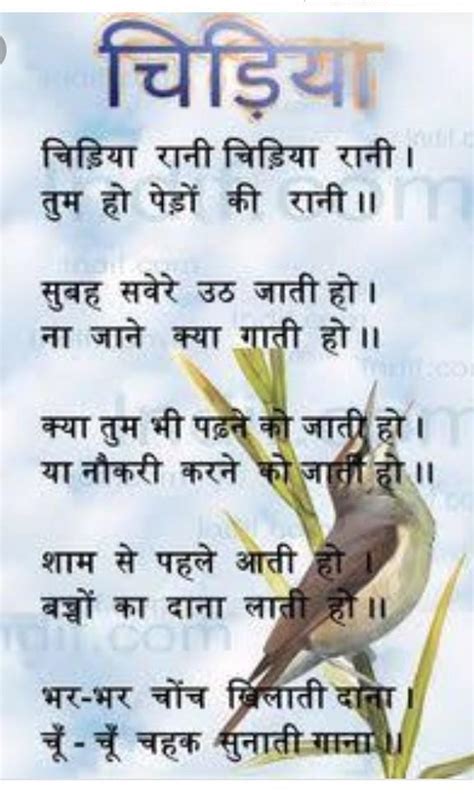 चिड़िया
चिड़िया रानी चिड़िया रानी।
तुम हो पेड़ों की रानी॥
सुबह सवेरे उठ जाती हो।
ना जाने क्या गाती हो॥
क्या तुम भी पढ़ने को जाती हो।
या नौकरी करने को जाती हो॥
शाम से पहले आती हो।
बच्चों का दाना लाती हो॥
भर-भर चोंच खिलाती दाना।
चूँ - चूँ चहक सुनाती गाना॥